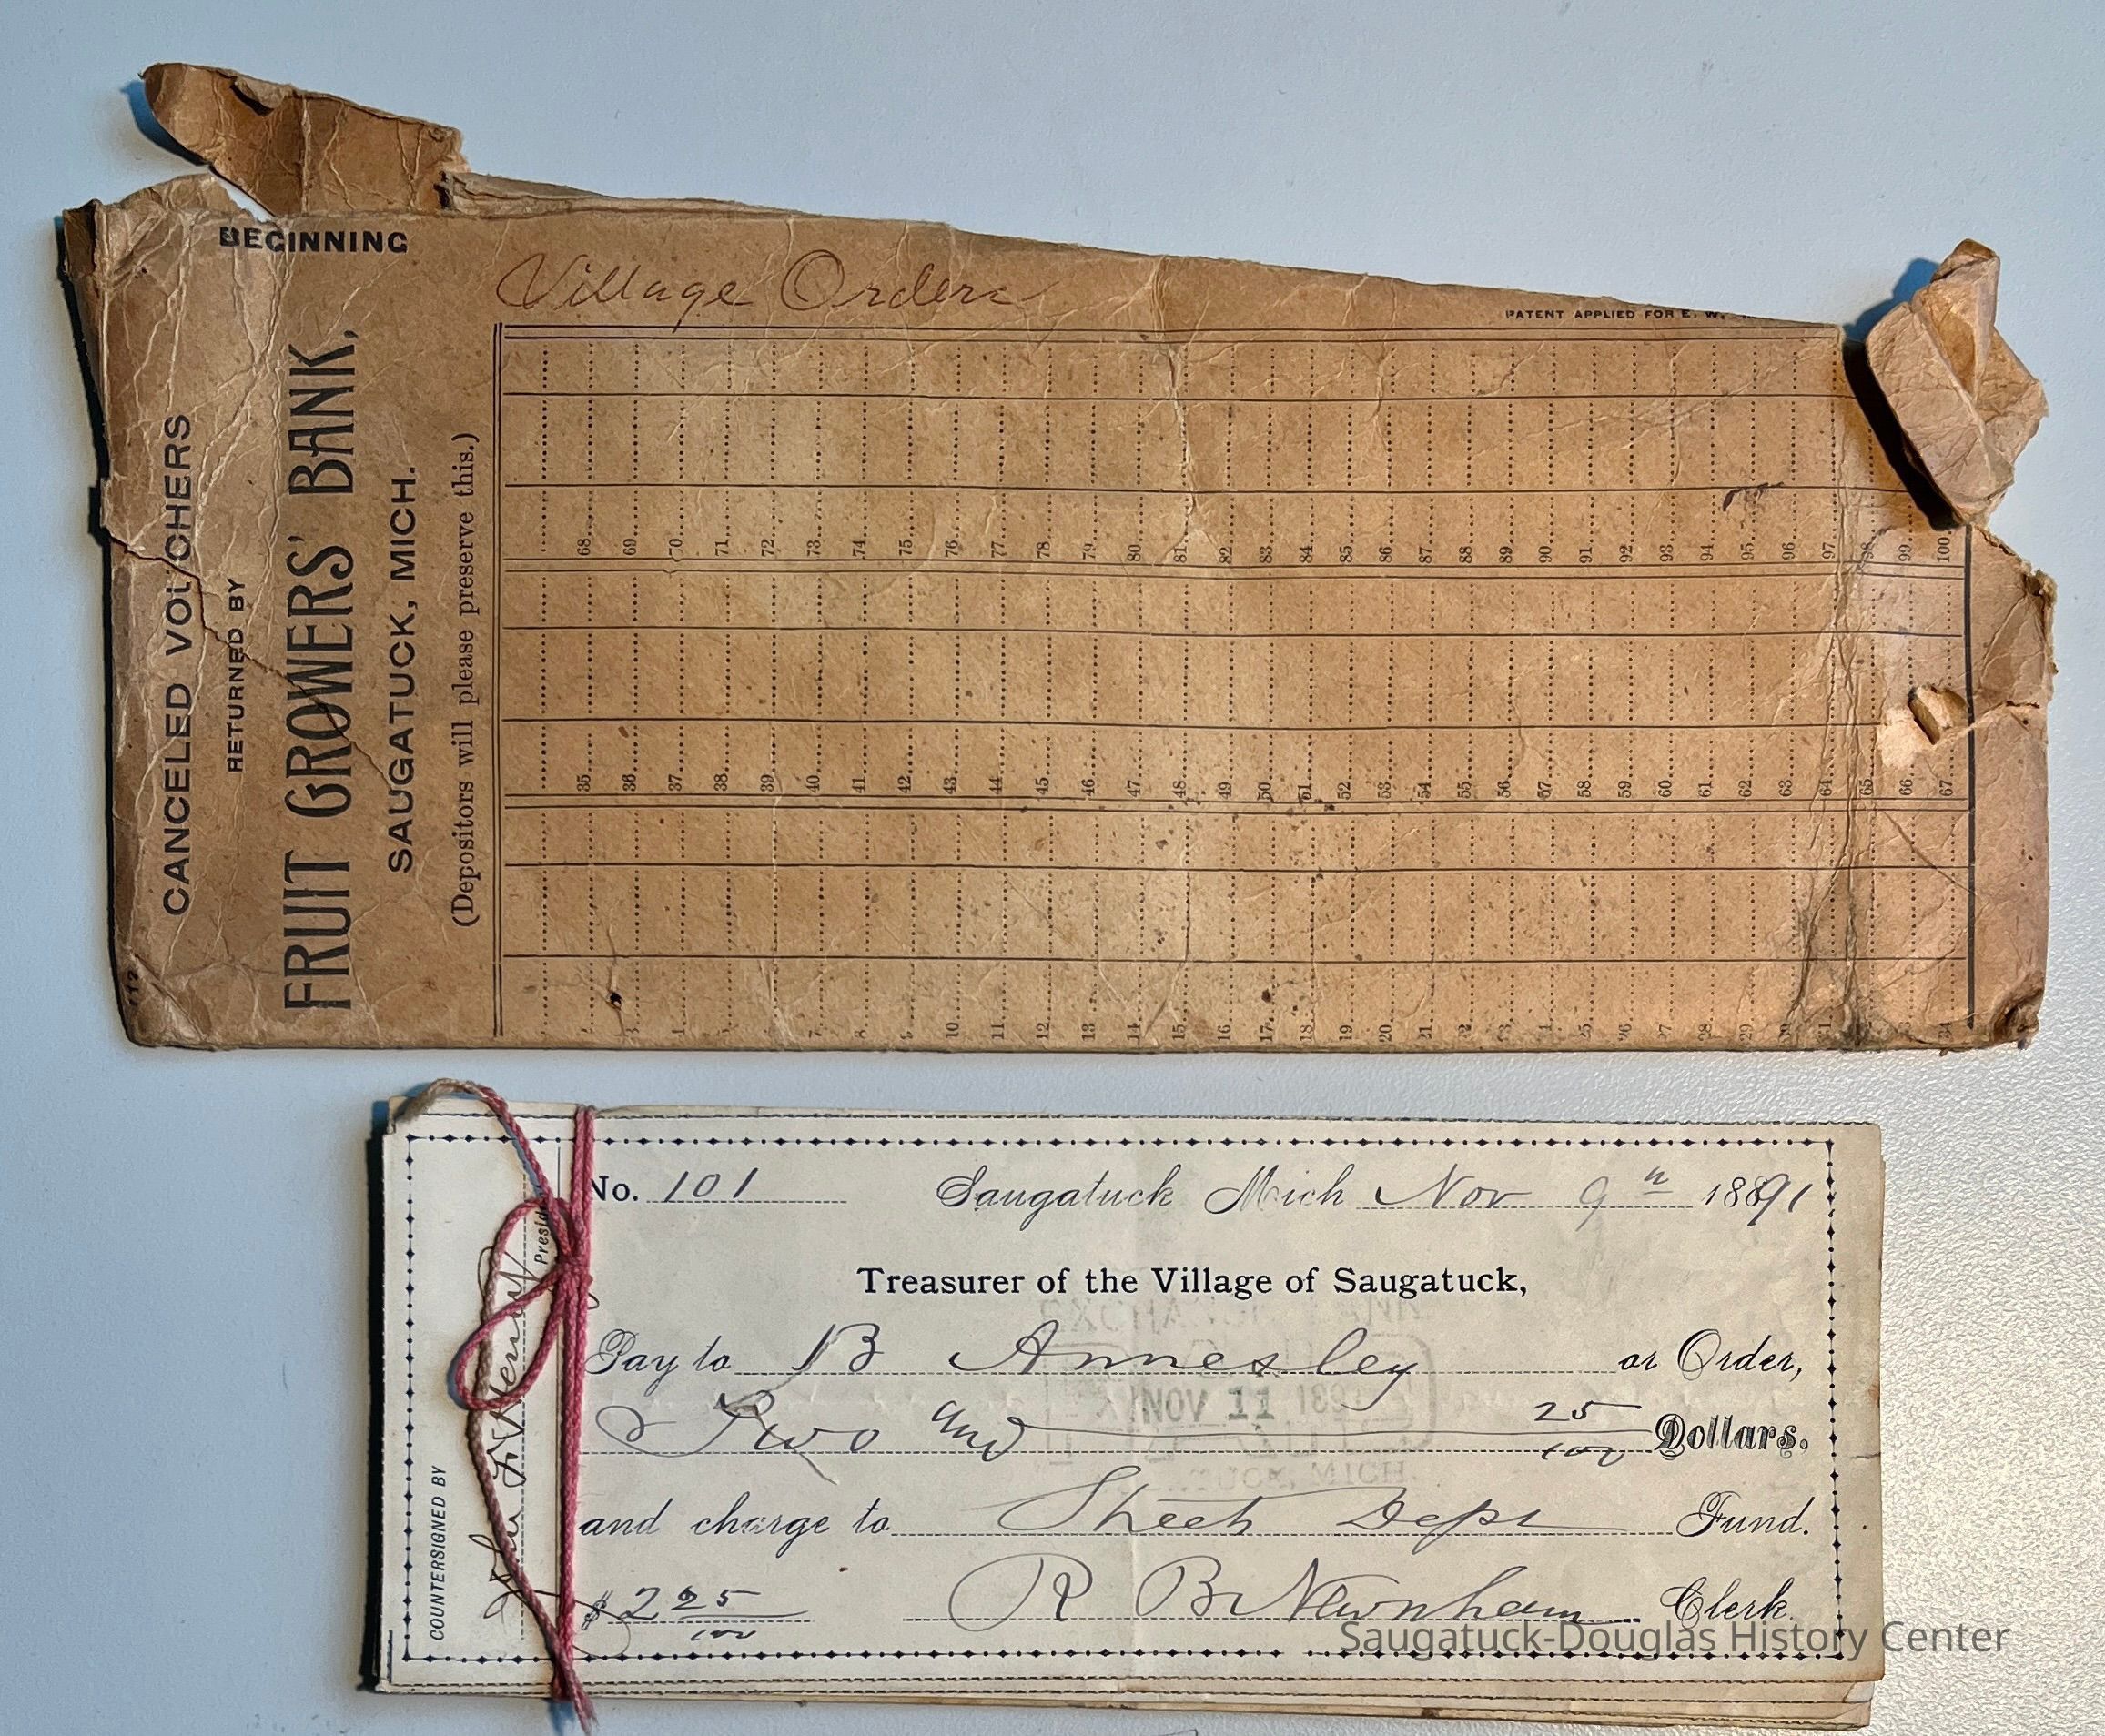 BEGINNING
Village Orders
PATENT APPLIED FOR E. W.
CANCELED VOUCHERS
RETURNED BY
FRUIT GROWERS' BANK,
SAUGATUCK, MICH.
(Depositors will please preserve this.)
68 69 70 71 72 73 74 75 76 77 78 79 80 81 82 83 84 85 86 87 88 89 90 91 92 93 94 95 96 97 98 99 100
35 36 37 38 39 40 41 42 43 44 45 46 47 48 49 50 51 52 53 54 55 56 57 58 59 60 61 62 63 64 65 66 67
7 8 9 10 11 12 13 14 15 16 17 18 19 20 21
No. 101 Saugatuck Mich Nov 9th 18891
Treasurer of the Village of Saugatuck,
Pay to B Annesley or Order,
NOV 11 189
Two and 25/100 Dollars.
MICH.
and charge to Street Dept Fund.
$2 25/100 R B Newnham Clerk.
COUNTERSIGNED BY
John F Henry
Presid
Saugatuck-Douglas History Center